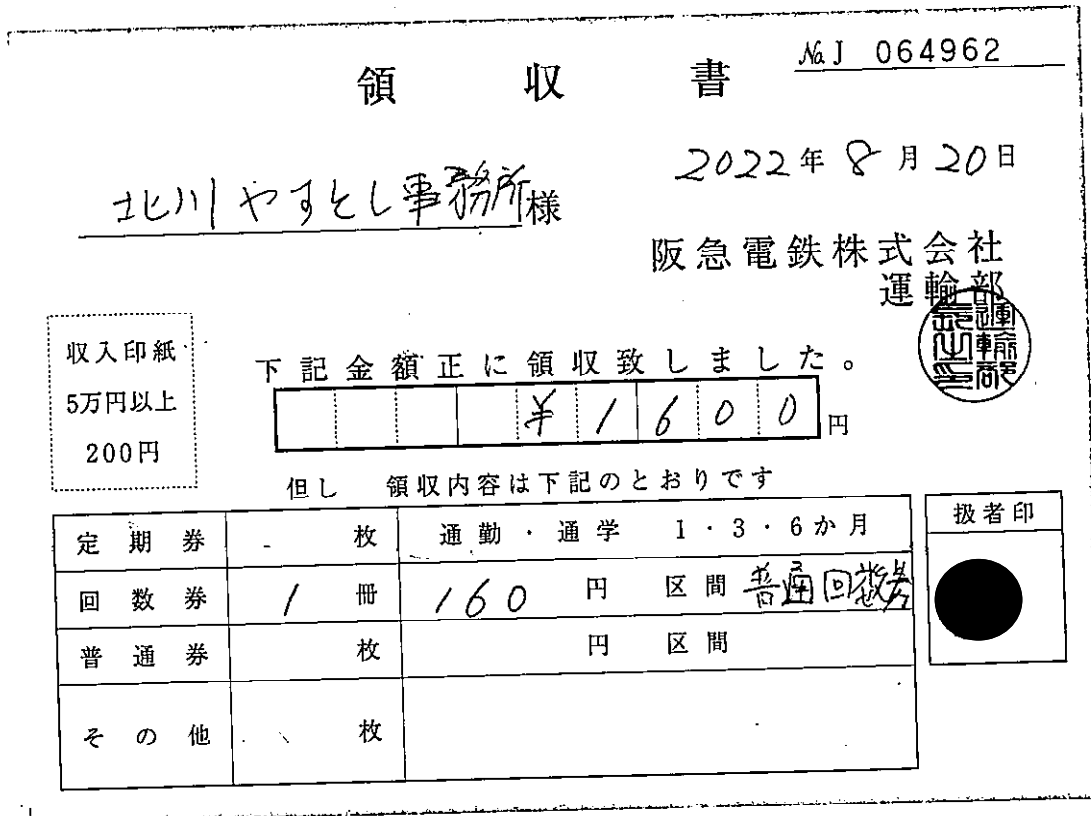 領収書
№J 064962
2022年8月20日
北川やすとし事務所様
阪急電鉄株式会社
運輸部
収入印紙
5万円以上
200円
下記金額正に領収致しました。
¥1600円
但し 領収内容は下記のとおりです
定期券 枚 通勤・通学 1・3・6か月
回数券 1冊 160円 区間 普通回数券
普通券 枚 円 区間
その他 枚
扱者印